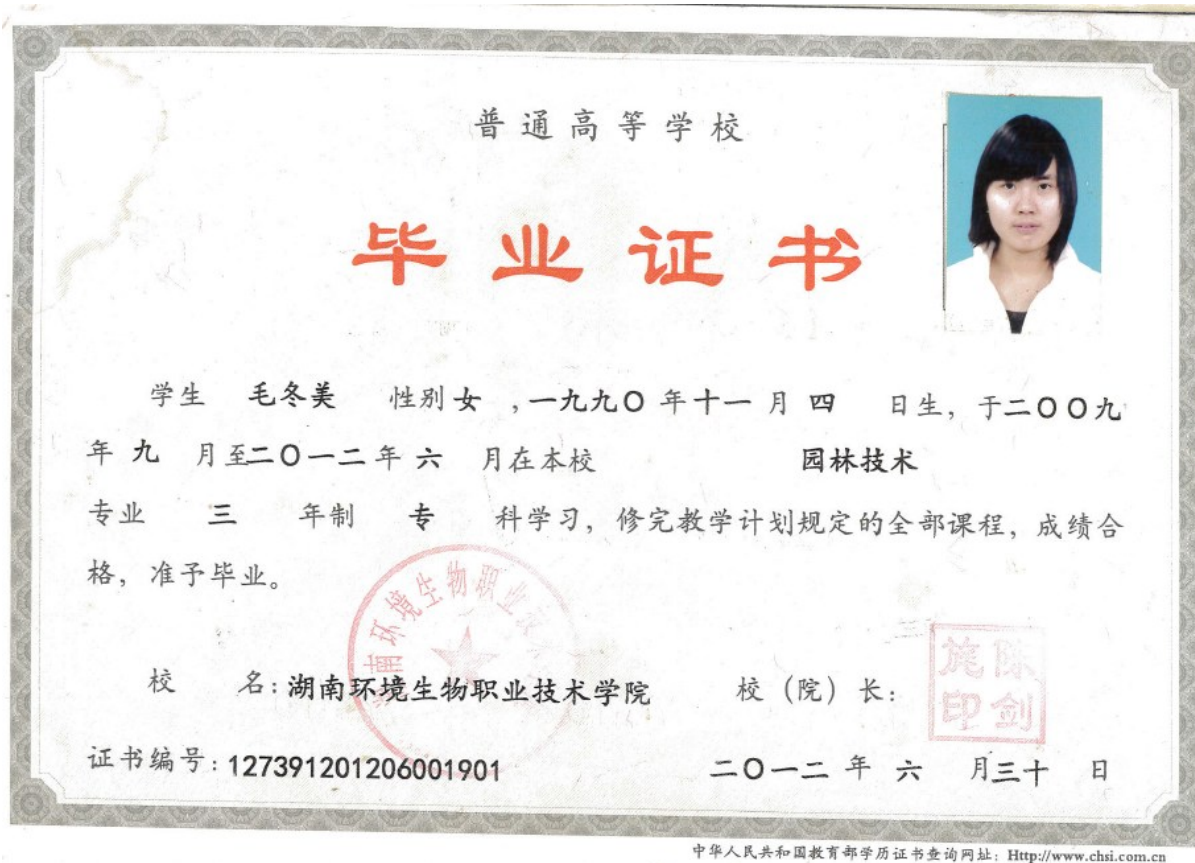 普通高等学校
毕业证书
学生 毛冬美 性别 女 ,一九九〇 年 十一 月 四 日生，于二〇〇九
年 九 月至二〇一二年 六 月在本校 园林技术
专业 三 年制 专 科学习，修完教学计划规定的全部课程，成绩合
格，准予毕业。
南环境生物职业
校 名：湖南环境生物职业技术学院 校（院）长：
陈剑旄印
证书编号：127391201206001901 二〇一二 年 六 月三十 日
中华人民共和国教育部学历证书查询网址：Http://www.chsi.com.cn